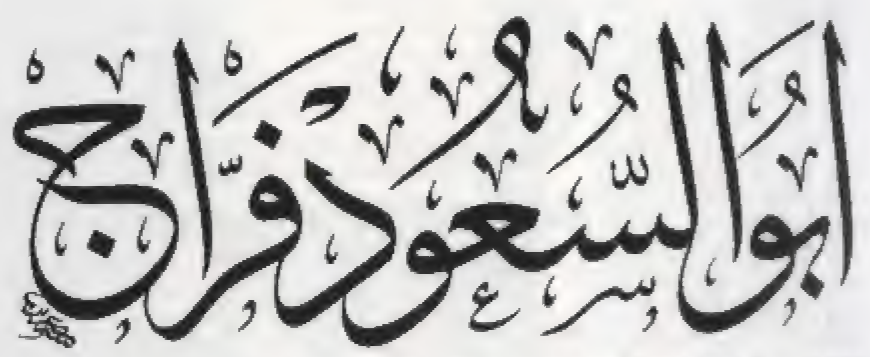 ابو السعود فراج